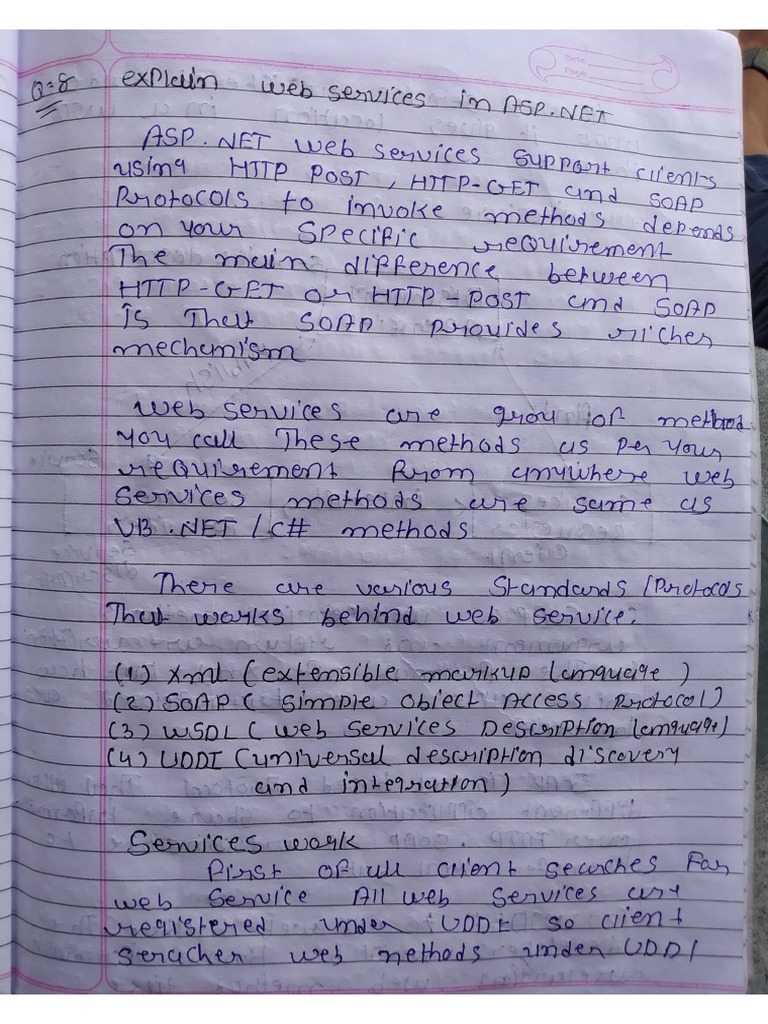 Date
Page
Q=8 explain web services in ASP.NET
ASP.NET web services support clients
using HTTP POST, HTTP-GET and SOAP
Protocols to invoke methods depends
on your specific requirement
The main difference between
HTTP-GET or HTTP-POST and SOAP
is That SOAP provides richer
mechanism
Web services are grou of method
you call These methods as per your
requirement from anywhere web
services methods are same as
VB.NET/C# methods
There are various Standards/Protocols
That works behind web service.
(1) Xml (extensible markup language)
(2) SOAP (Simple Object Access Protocol)
(3) WSDL (Web Services Description language)
(4) UDDI (universal description discovery
and integration)
Services work
first of all client searches for
web service All web services are
registered under UDDI so client
seracher web methods under UDDI